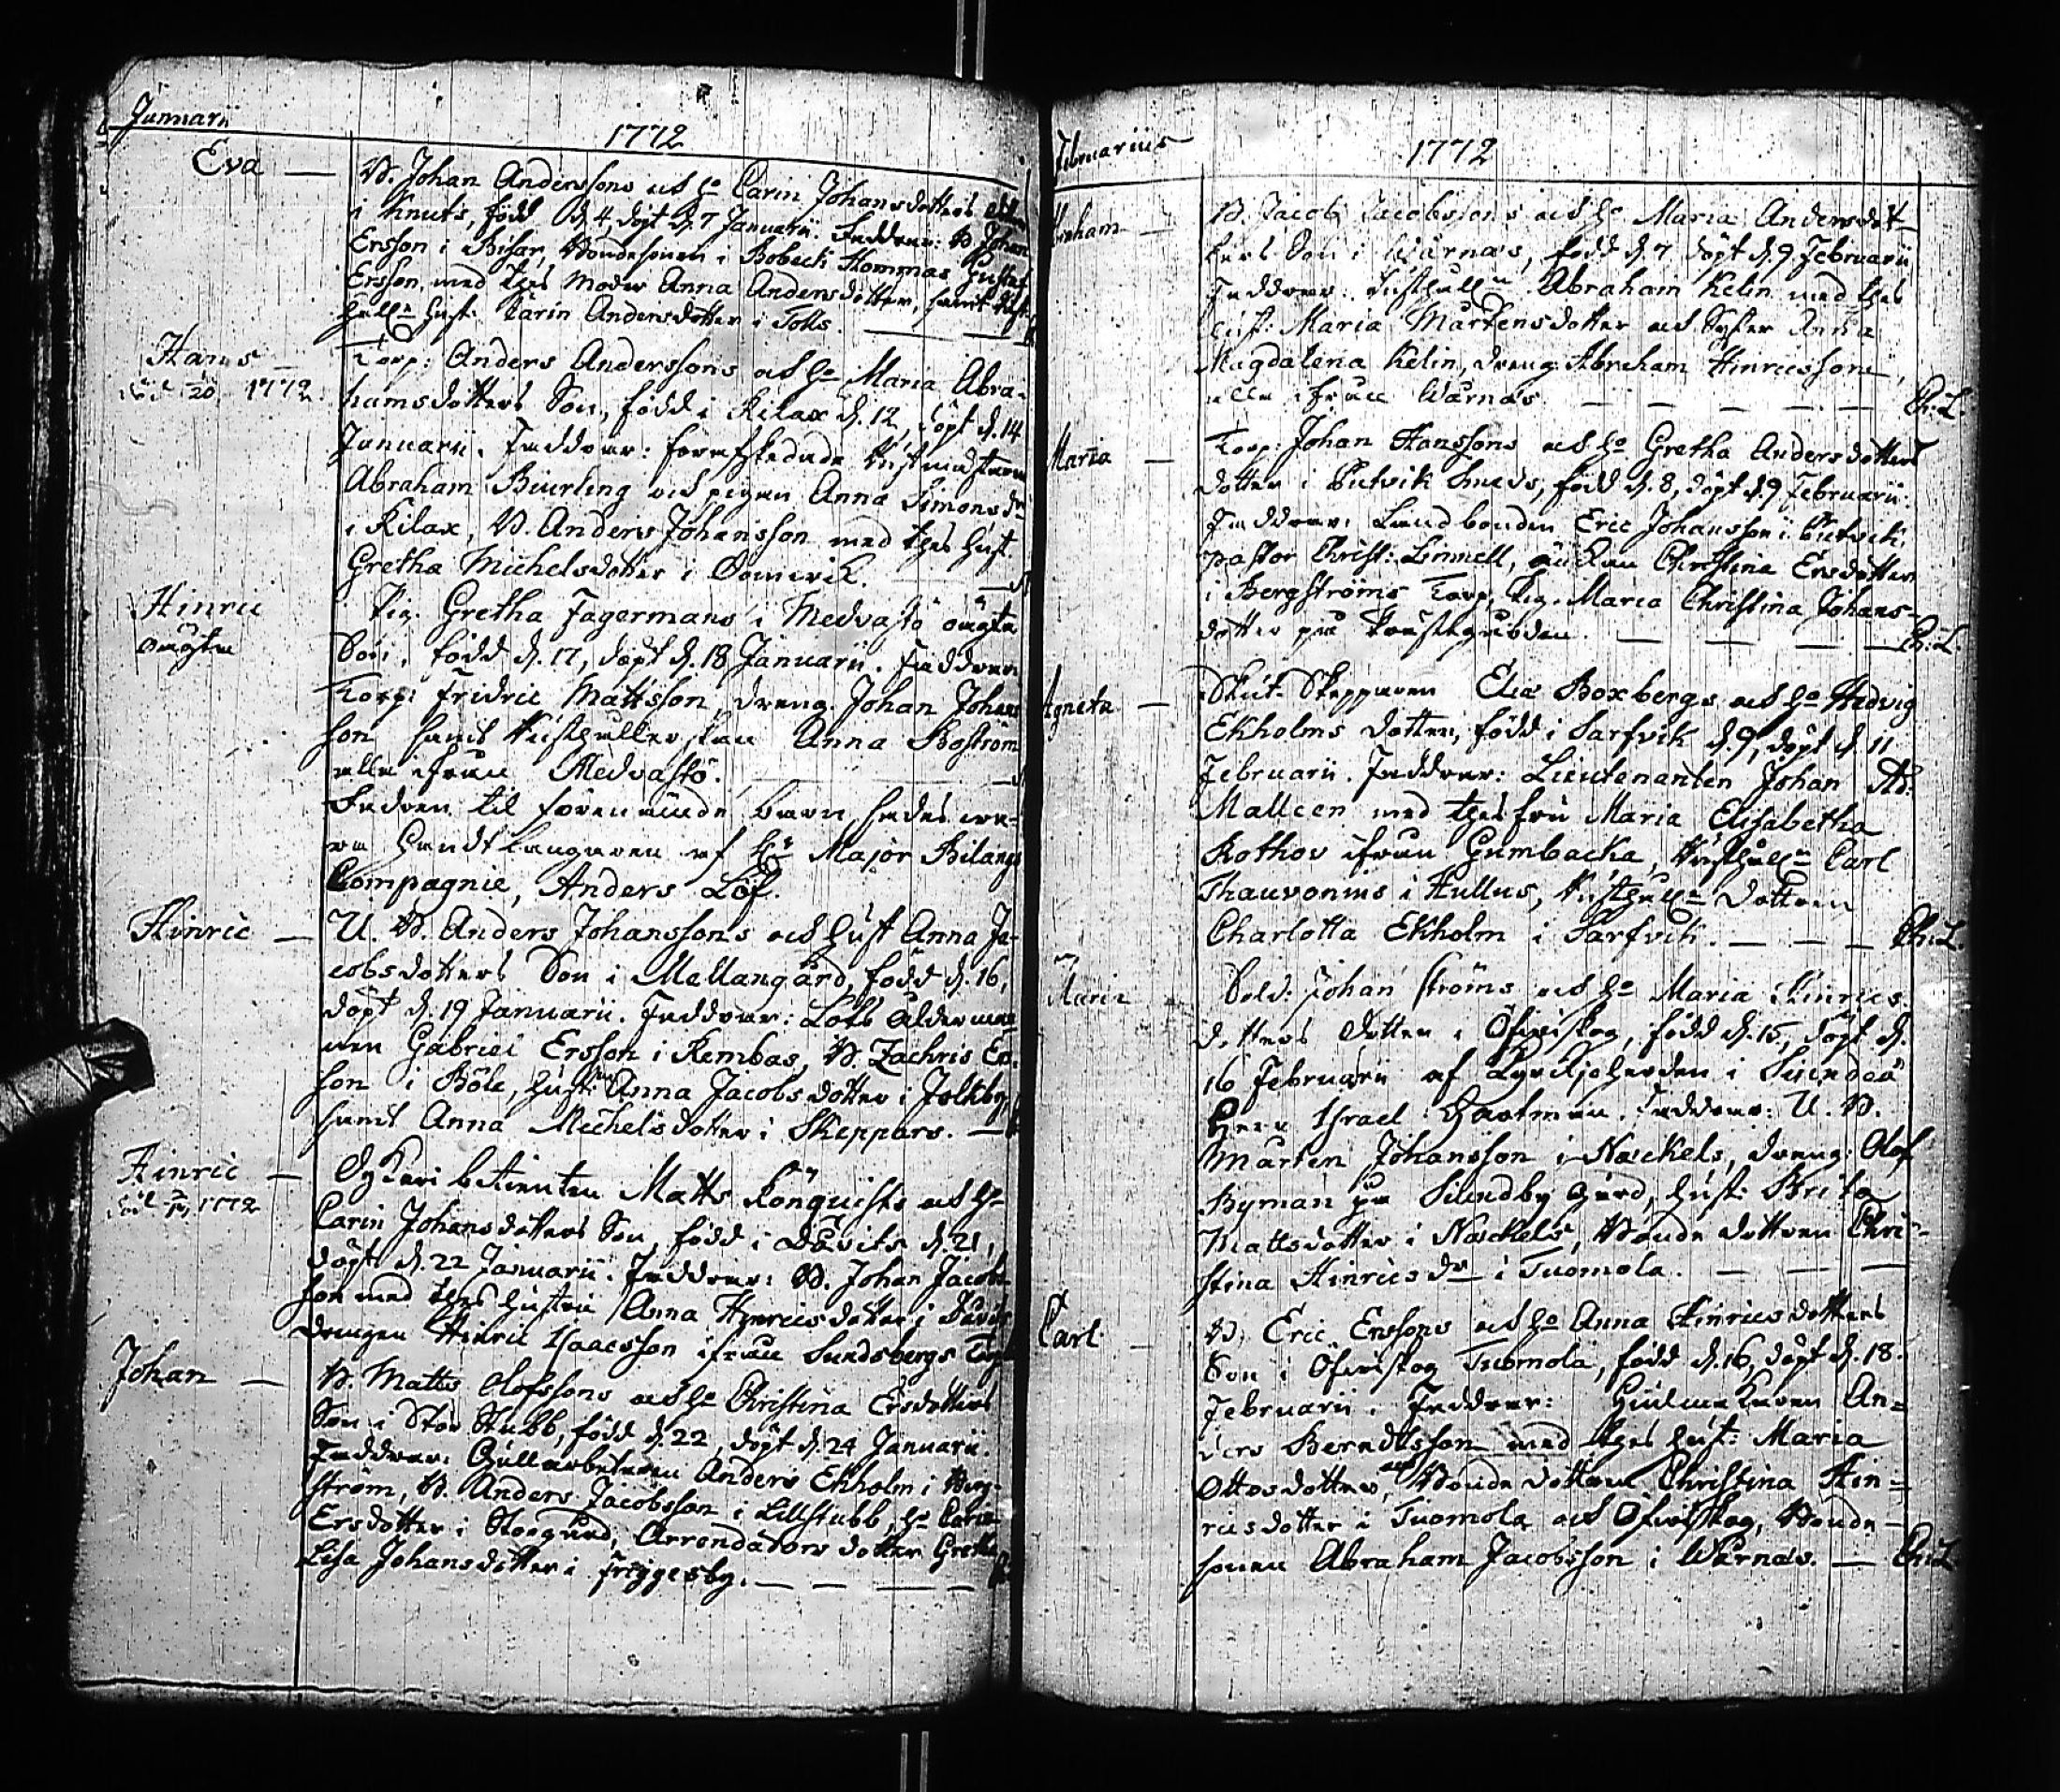 Januarii
1772
Eva — B. Johan Anderssons och Ho Carin Johansdotters
i Knuts, född d. 4, döpt d. 7 Januarii. Faddrar: B. Johan
Ersson i Bisar, Bondesonen i Bobeck Hommas Gustaf
Ersson med thes Moder Anna Andersdotter, samt
Hust: Carin Andersdotter i Tolls.
Hans — Torp: Anders Anderssons och Ho Maria Abra-
död 1772 hamsdotters Son, född i Kilax d. 12, döpt d. 14
Januarii. Faddrar: förafskedade
Abraham Biurling och pigan Anna Simonsdr
i Kilax, B. Anders Johansson med thes Hust.
Gretha Michelsdotter i
Hinric Pig. Gretha Fagermans i Medvastö oägta
oägta Son, född d. 17, döpt d. 18 Januarii. Faddrar
Torp: Fridric Mattsson, dreng. Johan Johans
son samt Anna Boström
alla ifrån Medvastö.
Fadren til förenämde barn sades wa-
ra Handtlangaren af Hr Major Bilangs
Compagnie, Anders Löf.
Hinric — U. B. Anders Johanssons och Hust Anna Ja-
cobsdotters Son i Mellangård, född d. 16,
döpt d. 19 Januarii. Faddrar: Lots Ålderman-
nen Gabriel Ersson i Rembas, B. Zachris Ers-
son i Böle, Hust: Anna Jacobsdotter i Jolkby,
samt Anna Michelsdotter i Skeppars. —
Hinric — betienten Matts Rönquists och Ho
död 1772 Carin Johansdotters Son, född i Davits d. 21,
döpt d. 22 Januarii. Faddrar: B. Johan Jacobs-
son med thes Hustru Anna Henricsdotter i Davids
drengen Hinric Isaacsson ifrån Sundsbergs Torp
Johan — B. Matts Olofssons och Ho Christina Ersdotters
Son i Stor Stubb, född d. 22, döpt d. 24 Januarii.
Faddrar: Anders Ekholm i
ström, B. Anders Jacobsson i Lillstubb, Ho Carin
Ersdotter i Storgård, Arrendators dotter Gretha
Lisa Johansdotter i Friggesby.
Februarius
1772
— B. Jacob Jacobssons och Ho Maria Andersdot-
ters Son i Wårnäs, född d. 7 döpt d. 9 Februarii
Faddrar: Abraham Kelin med thes
Hust: Maria Mårtensdotter och Syster Anna
Magdalena Kelin, dreng Abraham Hinricsson,
alla ifrån Wårnäs. — Ch: L.
Maria — Torp: Johan Hanssons och Ho Gretha Andersdotters
dotter i född d. 8, döpt d. 9 Februarii:
Faddrar: Landbonden Eric Johansson i
pastor Christ: Linnell, änkan Christina Ersdotter
i Bergströms Torp, Pig. Maria Christina Johans-
dotter på Prästegården. — Ch: L.
Agneta — Skut Skepparen Elia Boxbergs och Ho Hedvig
Ekholms dotter, född i Sarfvik d. 9, döpt d. 11
Februarii. Faddrar: Lieutenanten Johan Ad:
Malleen med thes fru Maria Elisabetha
Rothov ifrån Gumbacka, Carl
Thauvonius i Hullus, dottren
Charlotta Ekholm i Sarfvik. — Ch: L.
Maria Sold: Johan Ströms och Ho Maria Hinrics
dotters dotter i Öfwerskog, född d. 15, döpt d.
16 Februarii af Kyrckioherden i Siundeå
Herr Israel Hartman. Faddrar: U. B.
Mårten Johansson i Näckels, dreng: Olof
Byman på Siundby Gård, Hust: Brita
Mattsdotter i Näckels, Bonde dottren Chri-
stina Hinricsdr i Tuomola. —
Carl — B. Eric Erssons och Ho Anna Hinricsdotters
Son i Öfwerskog Tuomola, född d. 16, döpt d. 18.
Februarii. Faddrar: Hiulmakaren An-
ders Berndtsson med thes Hust: Maria
Ottosdotter, Bonde dottren Christina Hin-
ricsdotter i Tuomola och Öfwerskog, Bonde
sonen Abraham Jacobsson i Wårnäs. — Ch: L